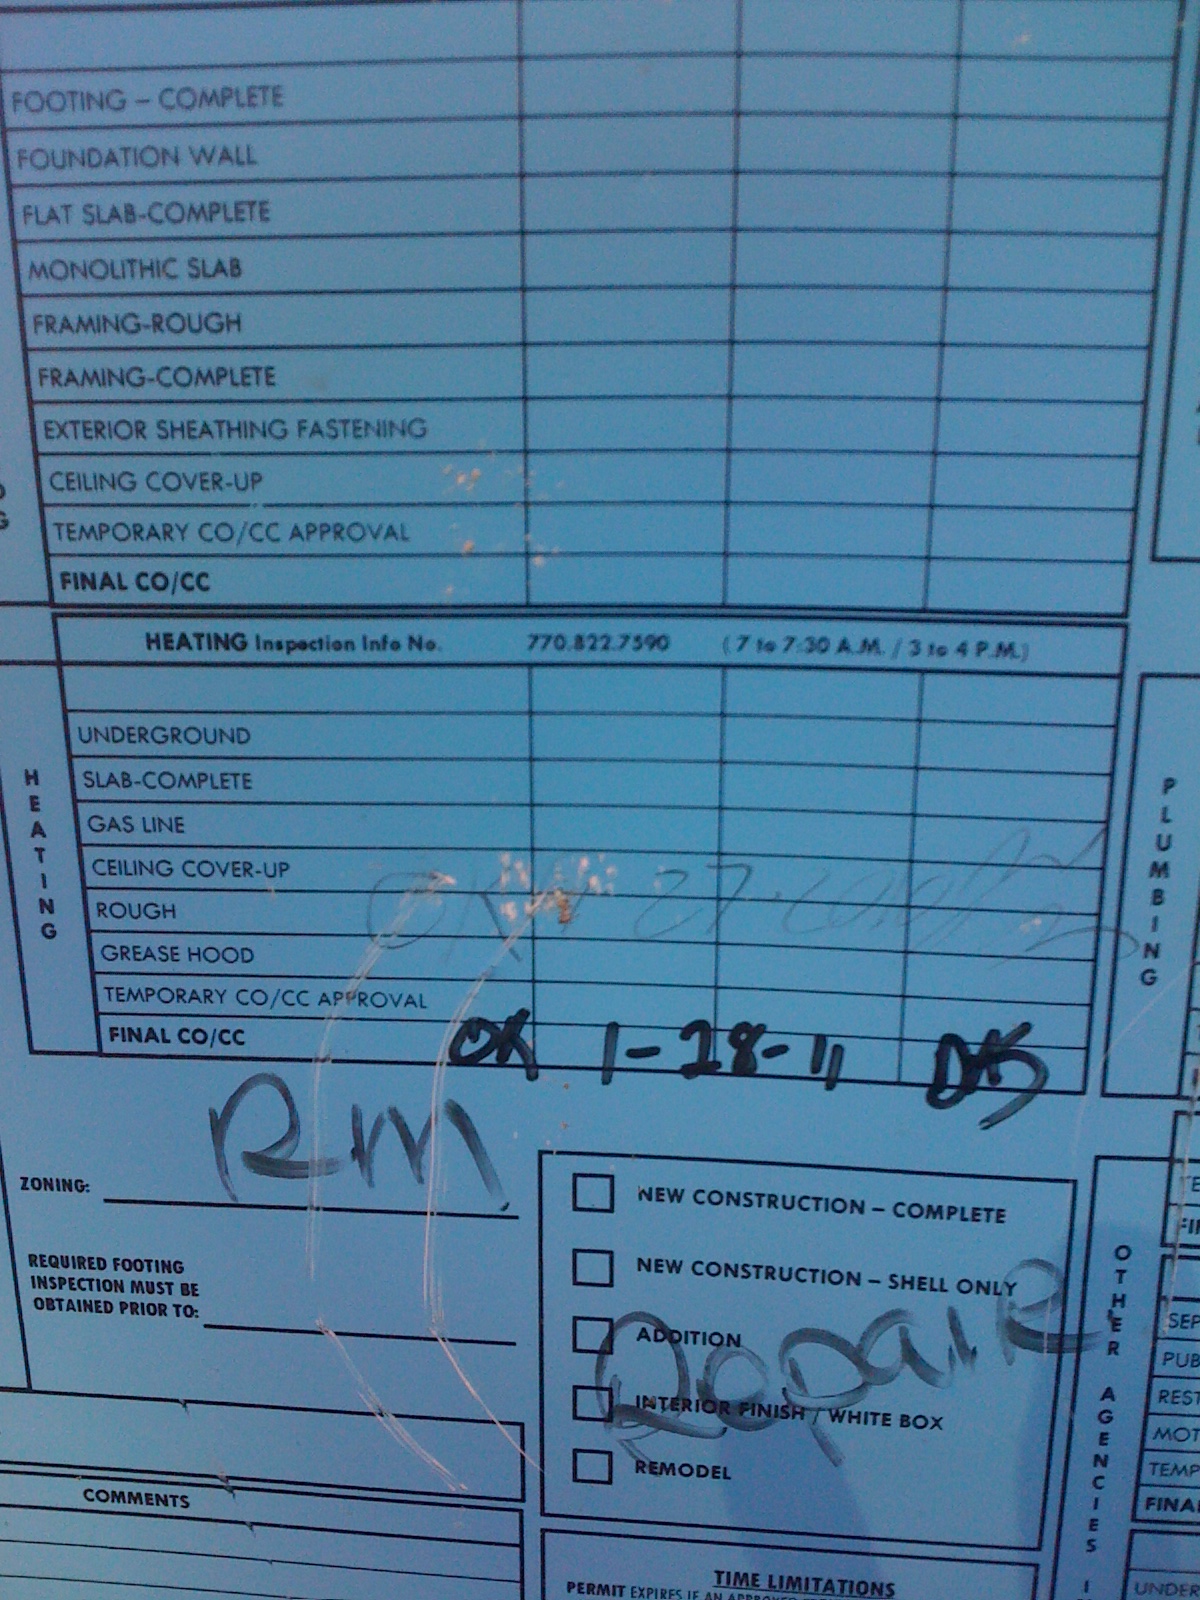 FOOTING – COMPLETE
FOUNDATION WALL
FLAT SLAB-COMPLETE
MONOLITHIC SLAB
FRAMING-ROUGH
FRAMING-COMPLETE
EXTERIOR SHEATHING FASTENING
CEILING COVER-UP
TEMPORARY CO/CC APPROVAL
FINAL CO/CC
HEATING Inspection Info No. 770.822.7590 (7 to 7:30 A.M. / 3 to 4 P.M.)
HEATING
UNDERGROUND
SLAB-COMPLETE
GAS LINE
CEILING COVER-UP
ROUGH
GREASE HOOD
TEMPORARY CO/CC APPROVAL
FINAL CO/CC OK 1-28-11
PLUMBING
ZONING: RM
REQUIRED FOOTING
INSPECTION MUST BE
OBTAINED PRIOR TO:
NEW CONSTRUCTION – COMPLETE
NEW CONSTRUCTION – SHELL ONLY
ADDITION
INTERIOR FINISH / WHITE BOX
REMODEL
Repair
COMMENTS
TIME LIMITATIONS
PERMIT EXPIRES IF AN
OTHER AGENCIES
SEP
PUB
REST
MOT
TEMP
FINA
UNDER